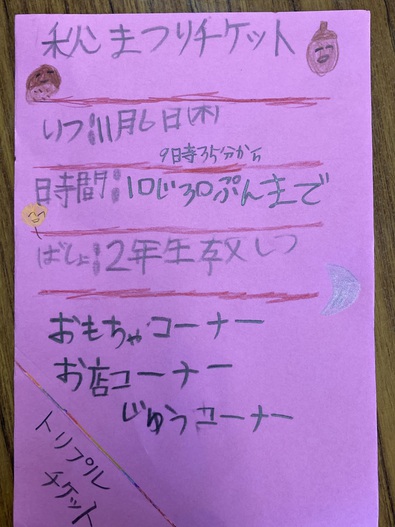 秋まつりチケット
いつ:11月6日(木)
9日寺35分から
日時間:10じ30ぷんまで
ばしょ:2年生教しつ
おもちゃコーナー
お店コーナー
じゅうコーナー
トリプル
チケット